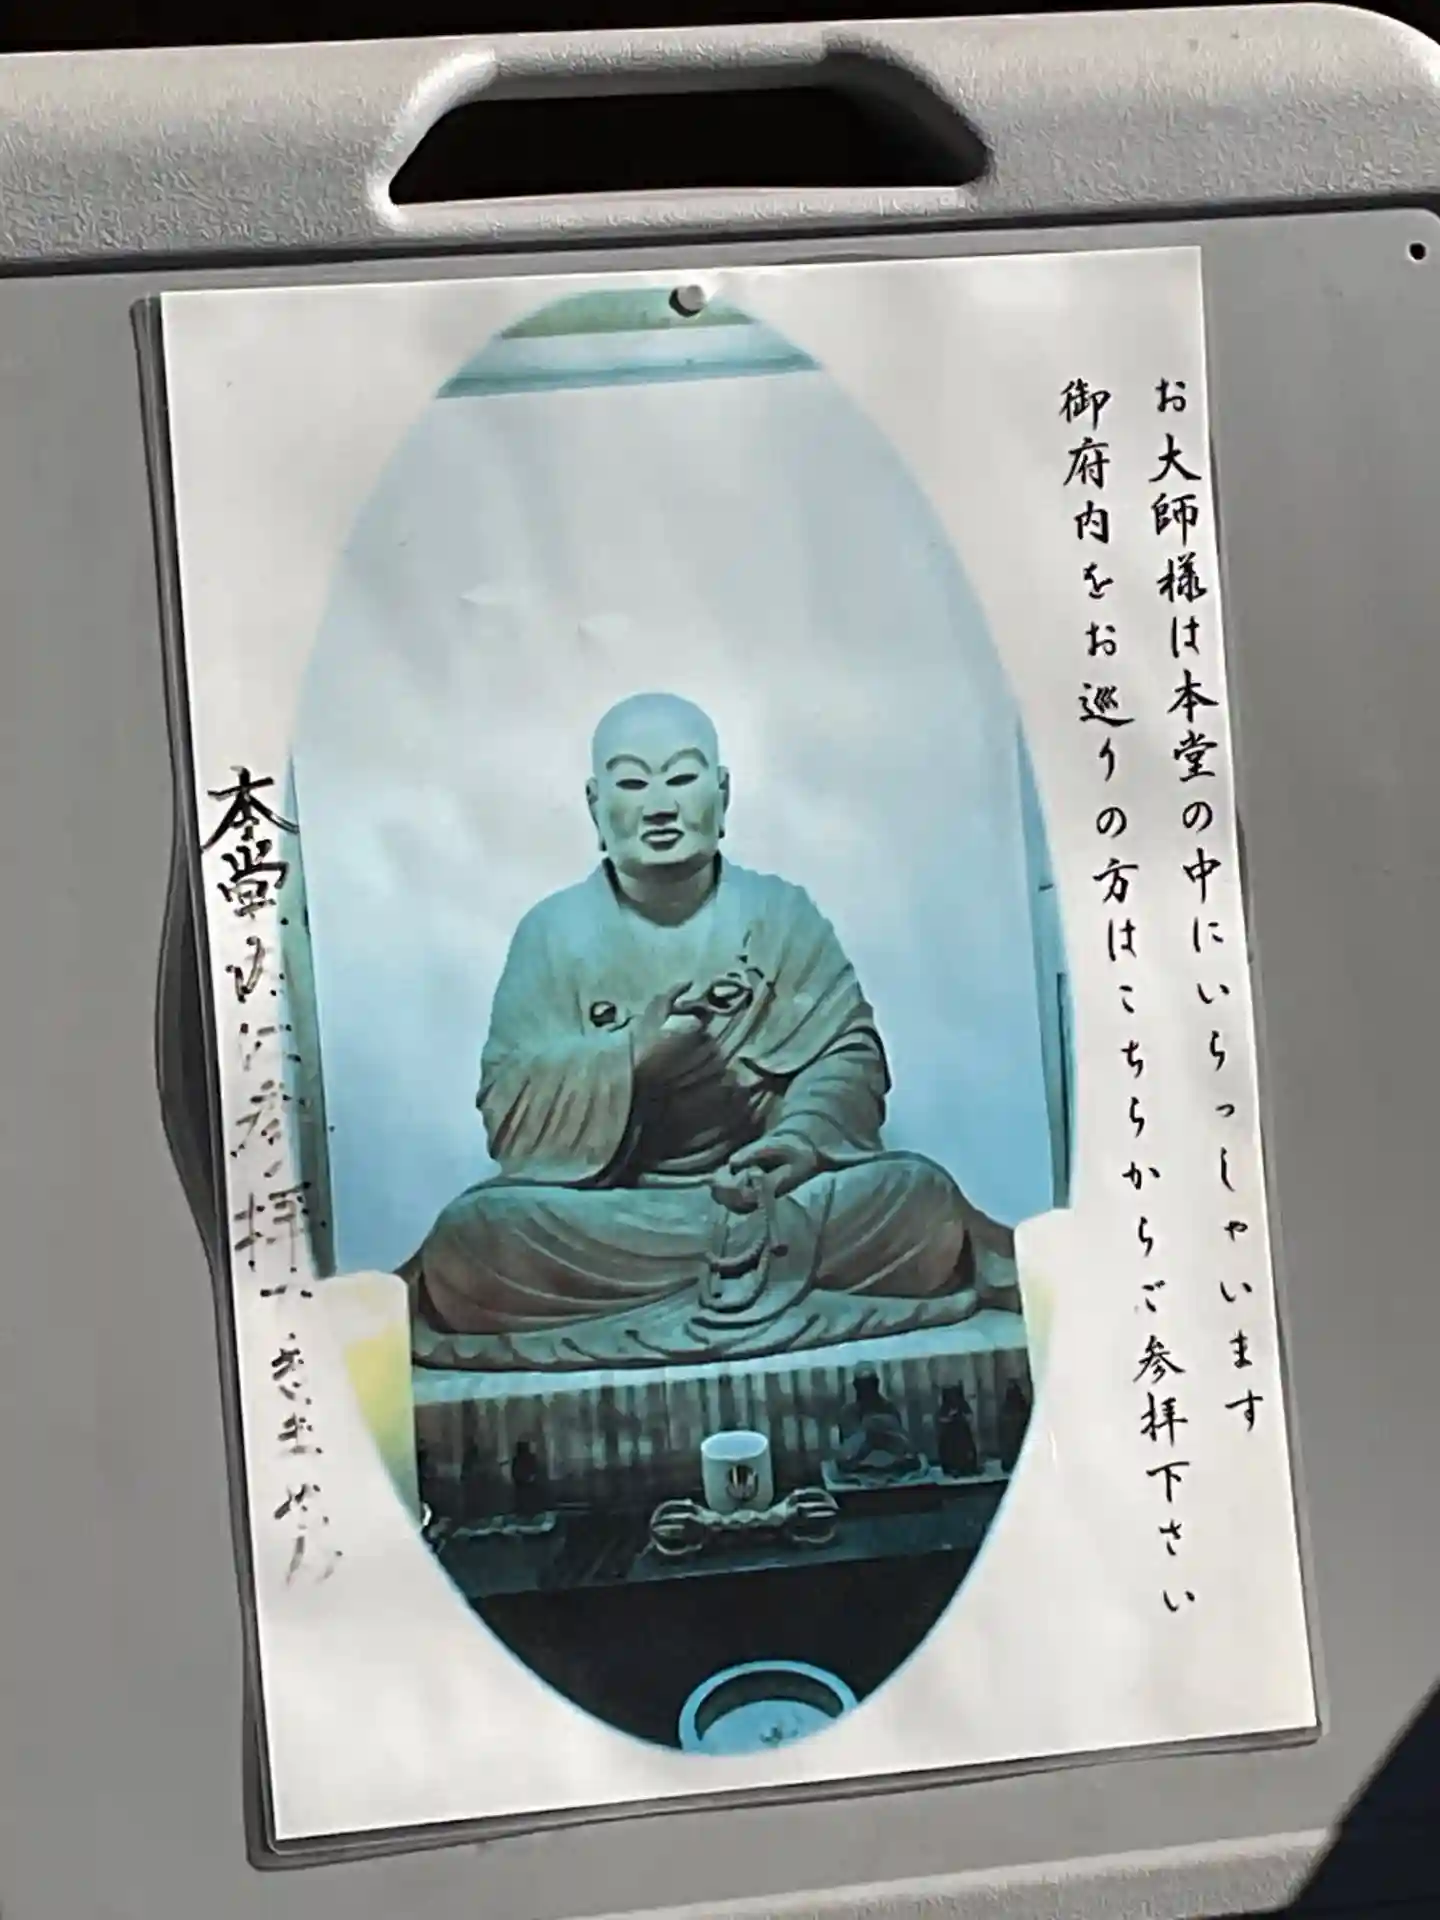 お大師様は本堂の中にいらっしゃいます
御府内をお巡りの方はこちらからご参拝下さい
本堂内に参拝出来ません